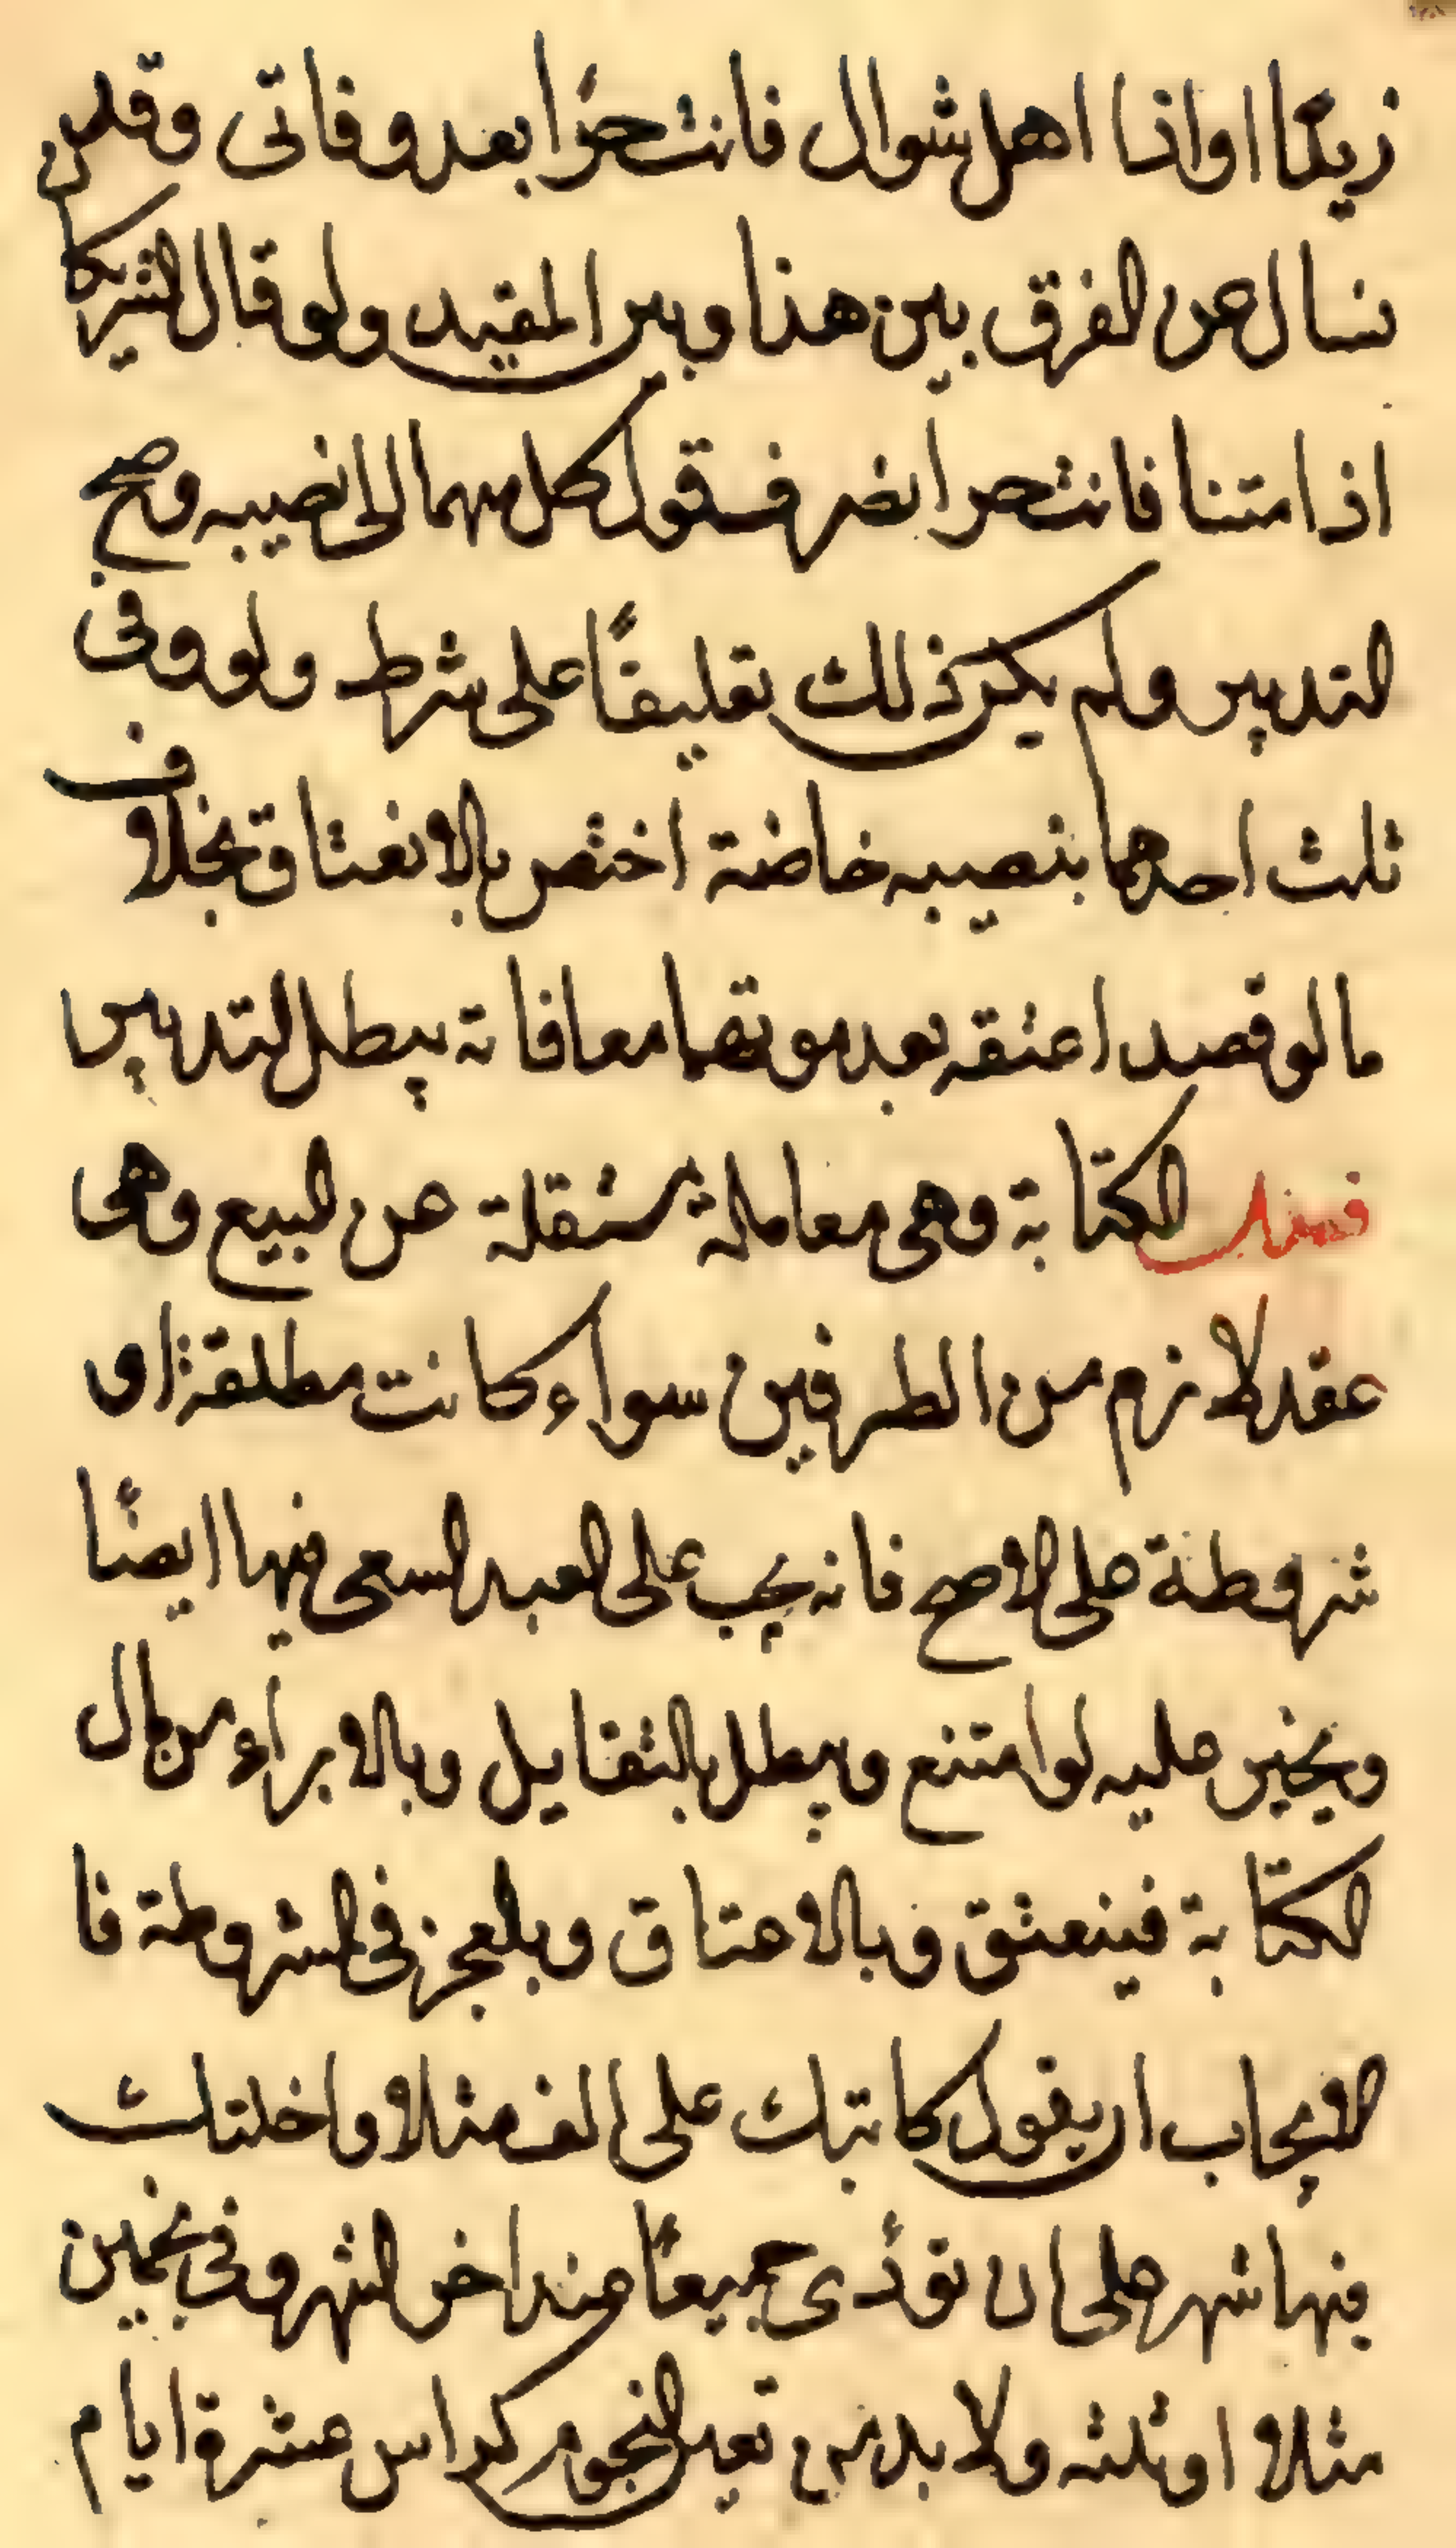 زيدًا او اذا اهل شوال فانت حرًا بعد وفاتى وقد
نسال عن الفرق بين هذا وبين المقيد ولو قال الشريكا
اذا متنا فانت حر انصرف قول كل منهما الى نصيبه وصح
التدبير ولم يكن ذلك تعليقًا على شرط ولو وفى
ثلث احدهما بنصيبه خاصة اختص بالانعتاق بخلاف
ما لو قصد اعتقه بعد موتهما معا فانه يبطل التدبير
الكتابة وهى معاملة مستقلة عن البيع وهى
عقد لازم من الطرفين سواء كانت مطلقة او
شروطة على الاصح فانه يجب على العبد السعى فيها ايضًا
ويجبر عليه لو امتنع ويبطل بالتقايل وبالابراء من مال
الكتابة فينعتق وبالاعتاق وبالعجز فى المشروطة فا
الايجاب ان يقول كاتبتك على الف مثلا واخلتلث
فيها شهر على ان تؤدى جميعًا عند اخر الشهر وفى نجمين
مثلا او ثلثه ولا بد من تعين النجوم كراس عشرة ايام